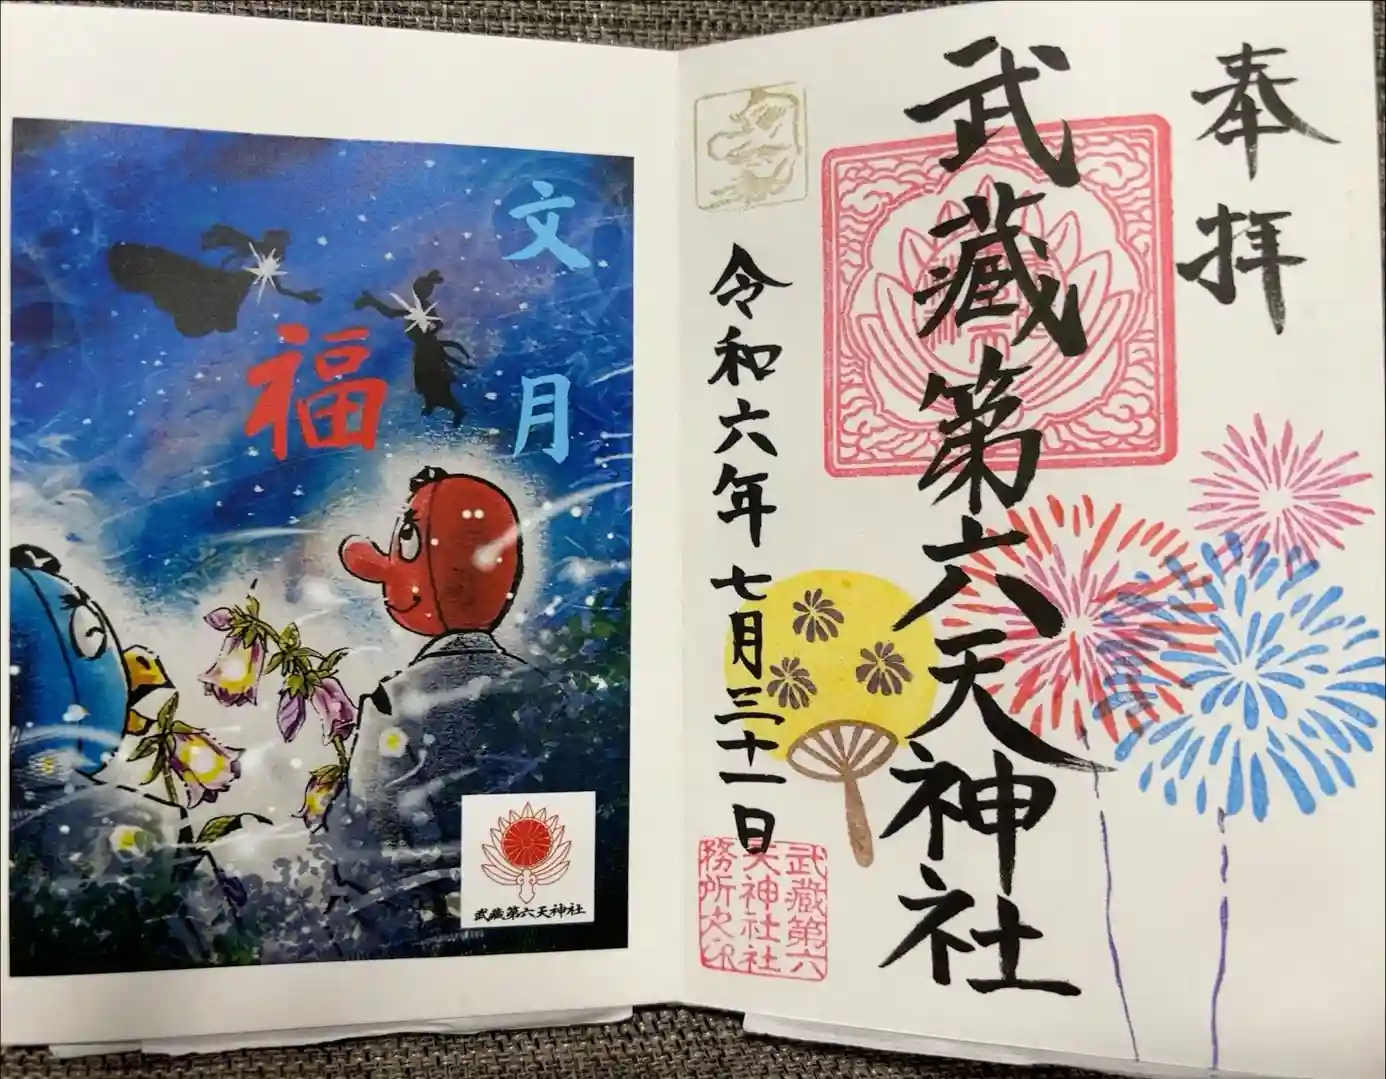 奉拝
武蔵第六天神社
令和六年七月三十一日
武蔵第六
天神社社
務所之印
文月
福
武蔵第六天神社